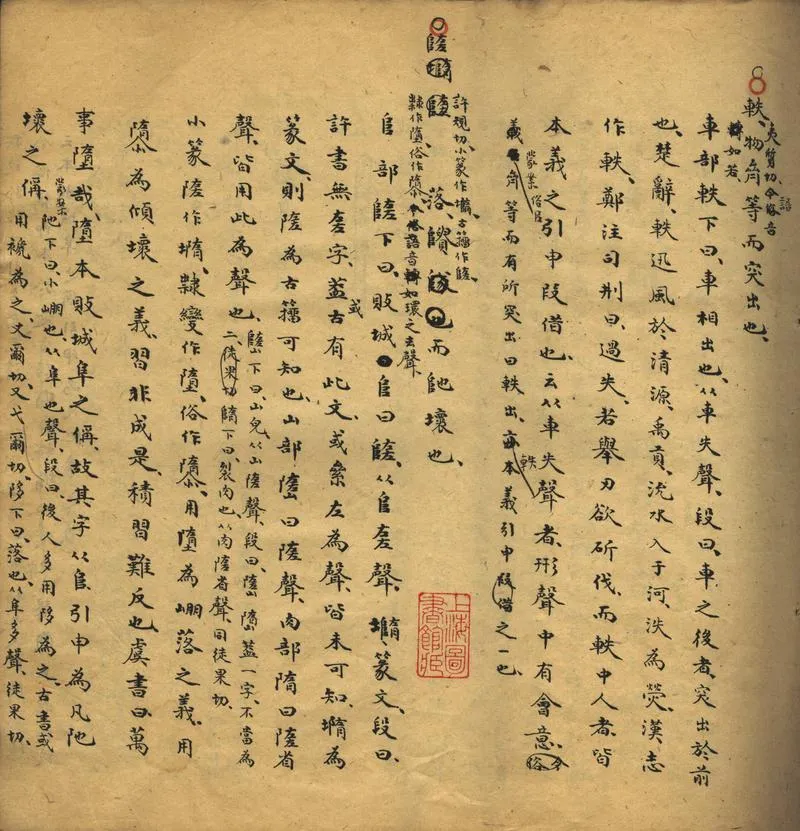 軼、物角等而突出也、
夷質切、今俗語音
轉如若、
車部軼下曰、車相出也、从車失聲、段曰、車之後者、突出於前
也、楚辭、軼迅風於清源、禹貢、沇水入于河、泆為熒、漢志
作軼、鄭注司刑曰、過失若舉刃欲斫伐、而軼中人者、皆
本義之引申叚借也、云从車失聲者、形聲中有會意、今俗
義角等而有所突出曰軼出、亦軼本義引申叚借之一也、
落、而阤壞也、
許規切、小篆作墮、古籀作隓、
隸作墮、俗作隳、今俗語音轉如環之去聲、
𨸏部隓下曰、敗城𨸏曰隓、从𨸏㕟聲、墮篆文、段曰、
許書無㕟字、蓋或古有此文、或絫左為聲、皆未可知、墮為
篆文、則隓為古籀可知也、山部嶞曰隓聲、肉部隋曰隓省
聲、皆用此為聲也、
嶞下曰、山皃、从山隓聲、段曰、蓋一字、不當為
二、徒果切、隋下曰、裂肉也、从肉隓省聲、同徒果切、
小篆隓作墮、隸變作墮、俗作隳、用墮為崩落之義、用
隳為傾壞之義、習非成是、積習難反也、虞書曰、萬
事墮哉、墮本敗城𨸏之稱、故其字从𨸏、引申為凡阤
壞之稱、
蒙業、阤下曰、小崩也、从𨸏也聲、段曰、後人多用陊為之、古書或
用褫為之、丈爾切、又弋爾切、陊下曰、落也、从𨸏多聲、徒果切、
上海圖書館藏